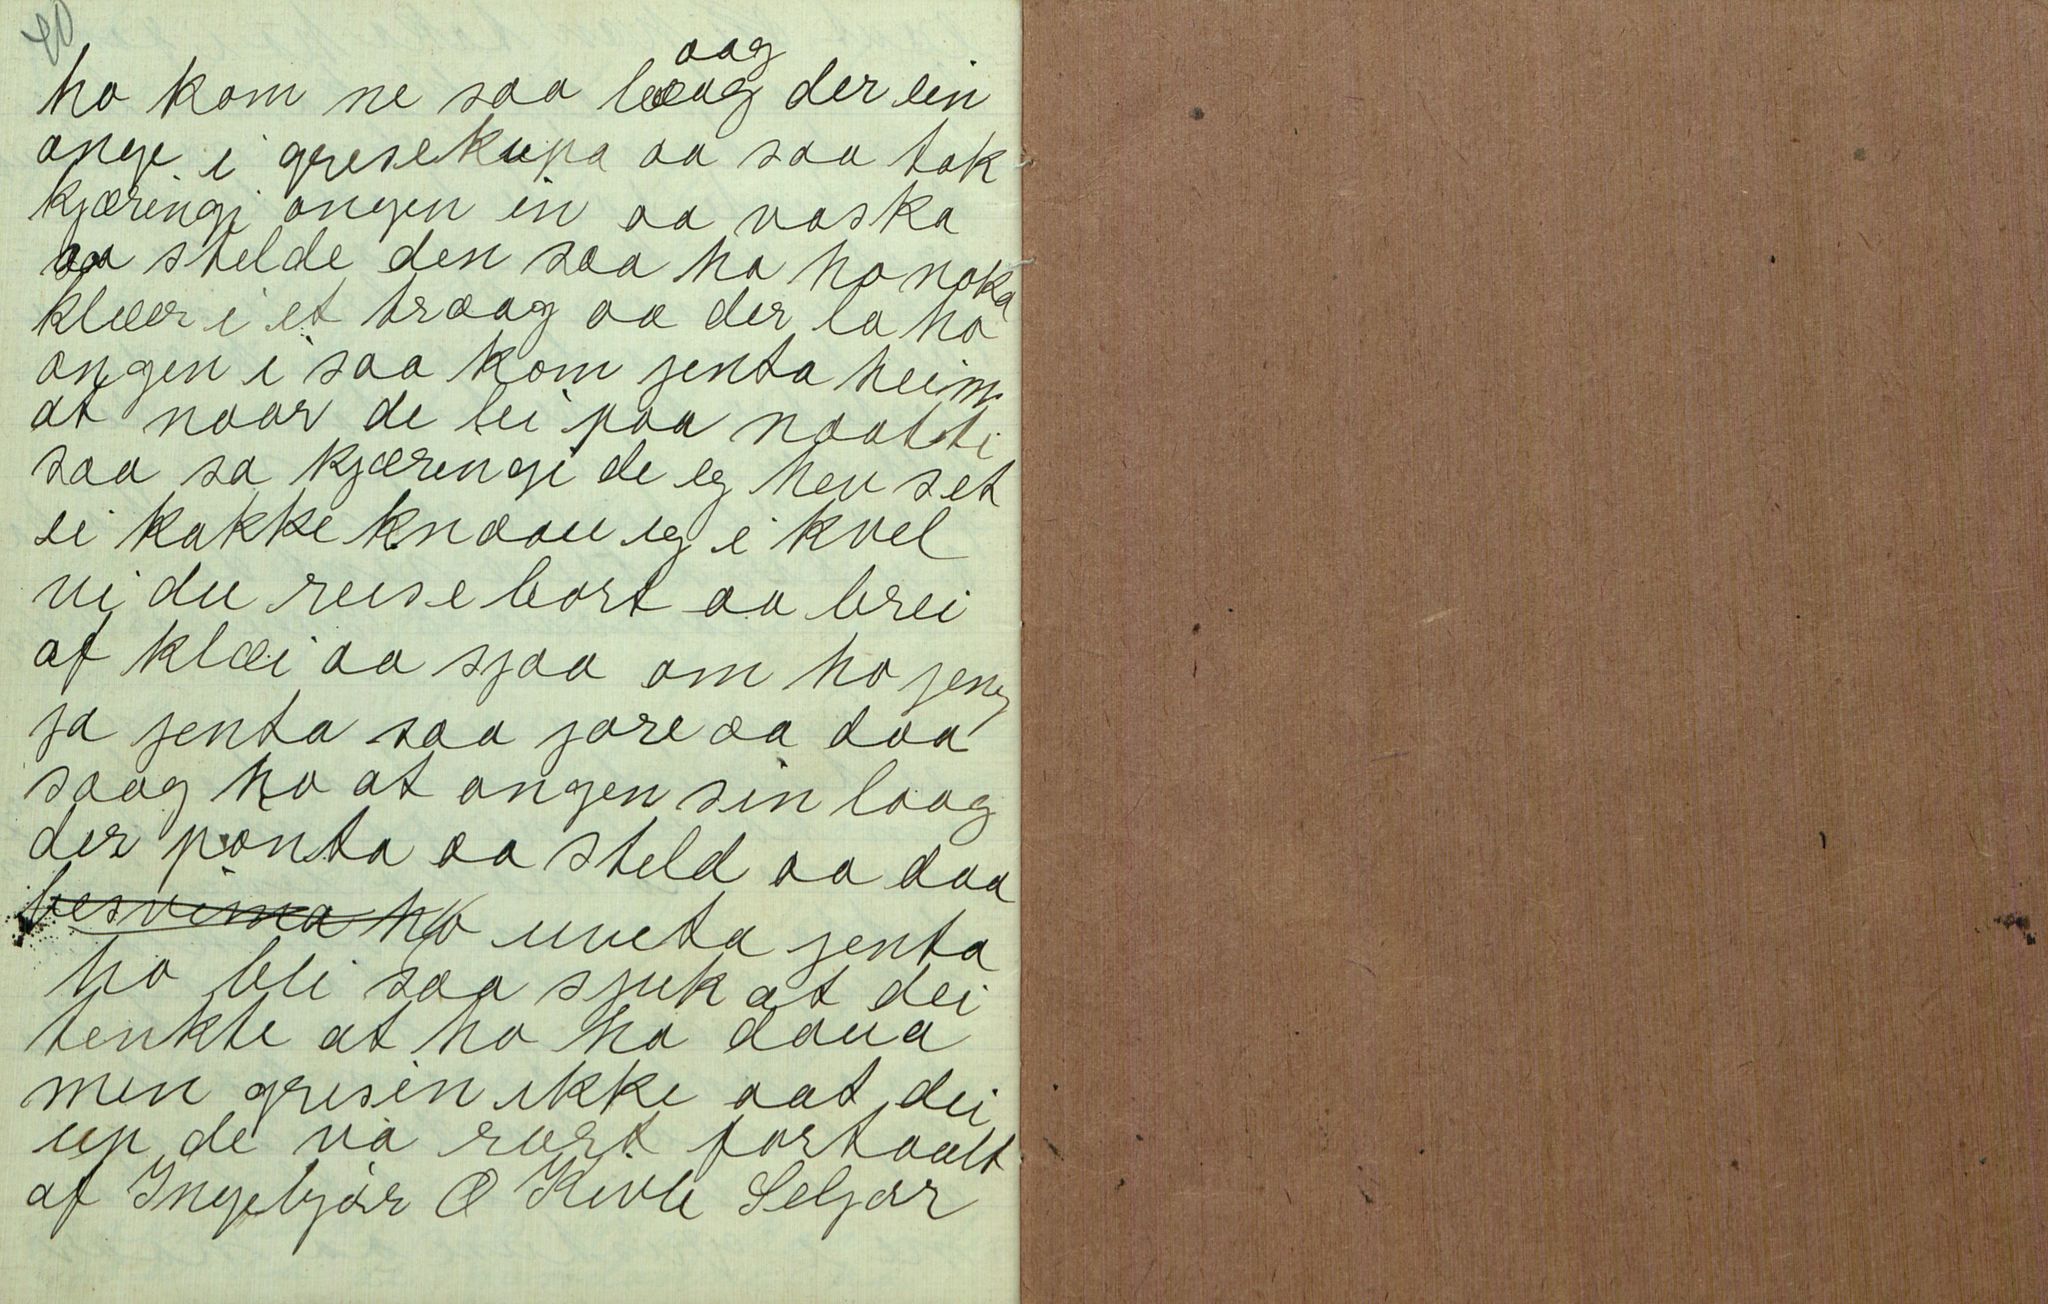 ho kom ne saa laag der ein
onge i grisekupa aa saa tok
kjæringi ongen in aa vaska
aa stelde den saa ha ho noka
klæer i et traag aa der la ho
ongen i saa kom jenta heim
at naar de lei paa naatti
saa sa kjæringi de eg hev set
ei kakke knaau eg i kvel
vi du reise bort aa brei
af klæi aa sjaa om ho jeng
ja jenta saa jore aa daa
saag ho at ongen sin laag
der pønta aa steld aa daa
besvima ho uveta jenta
ho blei saa sjuk at dei
tenkte at ho ha daua
men grisen ikke aat dei
up de va rart fortaalt
af Ingebjør O Kivle Seljor